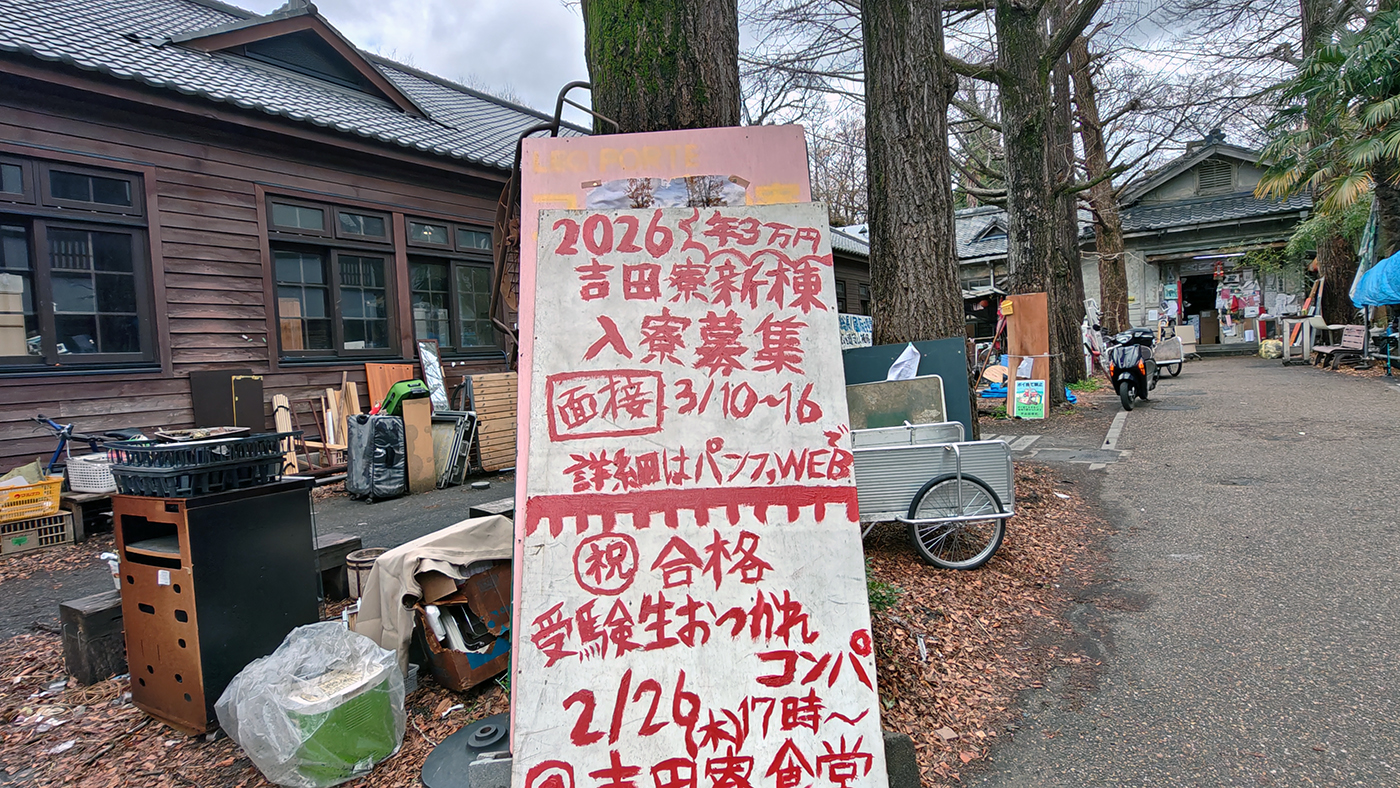 LEO PORTE
2026 年3万円
吉田寮新棟
入寮募集
面接 3/10~16
詳細はパンフ,WEBで
祝 合格
受験生おつかれ
コンパ
2/26(木)17時~
吉田寮食堂